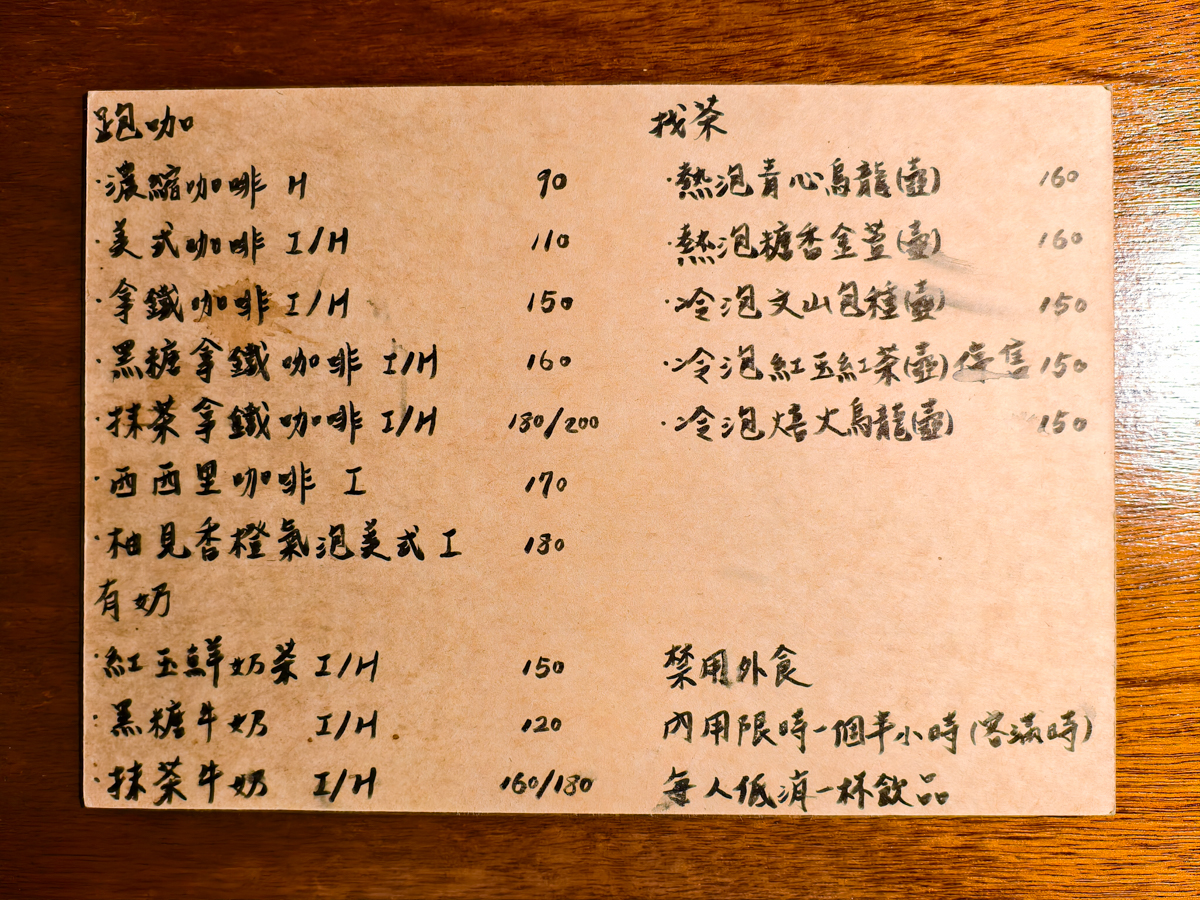 跑咖
·濃縮咖啡 H 90
·美式咖啡 I/H 110
·拿鐵咖啡 I/H 150
·黑糖拿鐵咖啡 I/H 160
·抹茶拿鐵咖啡 I/H 180/200
·西西里咖啡 I 170
·柚見香橙氣泡美式 I 180
有奶
·紅玉鮮奶茶 I/H 150
·黑糖牛奶 I/H 120
·抹茶牛奶 I/H 160/180
找茶
·熱泡青心烏龍(壺) 160
·熱泡糖香金萱(壺) 160
·冷泡文山包種(壺) 150
·冷泡紅玉紅茶(壺) 停售 150
·冷泡焙火烏龍(壺) 150
禁用外食
內用限時一個半小時(客滿時)
每人低消一杯飲品